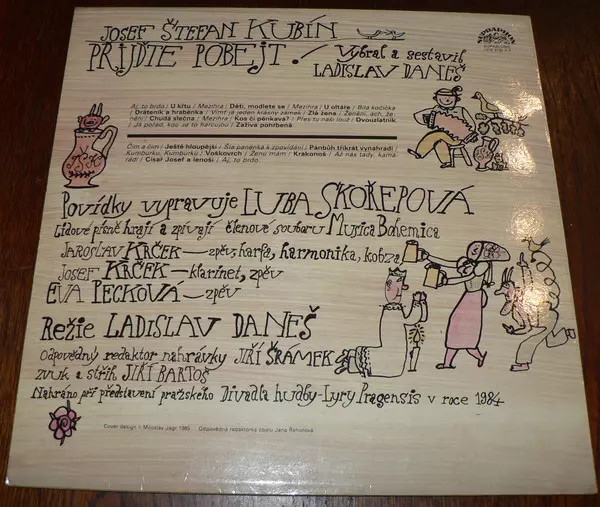 JOSEF ŠTEFAN KUBÍN
PŘIJĎTE POBEJT!
Vybral a sestavil
LADISLAV DANEŠ
SUPRAPHON
Aj, to brdo / U kříu / Mezihra / Děti, modlete se / Mezihra / U oltáře / Bílá kočička
/ Dráteník a hraběnka / Vímť já jeden krásný zámek / Zlá žena / Ženění, ach, že-
nění / Chudá slečna / Mezihra / Kos či pěnkava? / Přes tu naši louž / Dvouzlatník
/ Já pořád, kdo už to harcoujou / Zaživa pohřbená
Čím a čím / Ještě hloupější / Šla panenka k zpovídání / Pánbůh třikrát vynahradí /
Kumburku, Kumburku / Voskovrch / Ženu mám / Krakonoš / Až nás tady, kama-
rádi / Císař Josef a lenoši / Aj, to brdo
Povídky vypravuje LUBA SKOŘEPOVÁ
Lidové písně hrají a zpívají členové souboru Musica Bohemica
JAROSLAV KRČEK — zpěv, harfa, harmonika, kobza
JOSEF KRČEK — klarinet, zpěv
EVA PECKOVÁ — zpěv
Režie LADISLAV DANEŠ
Odpovědný redaktor nahrávky JIŘÍ ŠRÁMEK
zvuk a střih JIŘÍ BARTOŠ
Nahráno při představení pražského Divadla hudby-Lyry Pragensis v roce 1984
Cover design © Miloslav Jágr 1985 Odpovědná redaktorka obalu Jana Řehonová